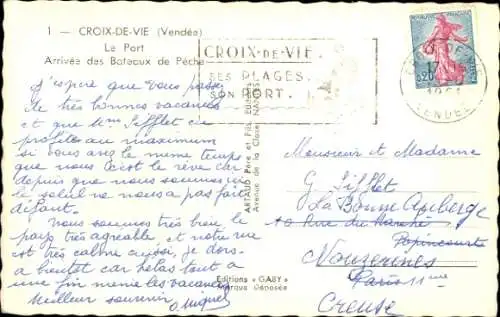 1 - CROIX-DE-VIE (Vendée)
Le Port
Arrivée des Bateaux de Pêche
CROIX-DE-VIE.
SES PLAGES.
SON PORT.
CROIX DE VIE
17
1961
VENDEE
0,20
J'espère que vous passez
de très bonnes vacances
et que Mme Sifflet en
profite au maximum
si vous avez le même temps
que nous c'est le rêve car
depuis que nous sommes ici
le soleil ne nous a pas fait
défaut.
Nous sommes très bien le
pays très agréable, et notre rue
est très calme aussi, je dors
a bientôt car hélas tout a
une fin même les vacances
Meilleur souvenir
ARTAUD Père et Fils Editeurs
Avenue de la Close NANTES
Editions "GABY"
Marque Déposée
Monsieur et Madame
G Sifflet
La Bonne Auberge
10 Rue du Marché
Popincourt
Nouzerines
Paris 11ème
Creuse